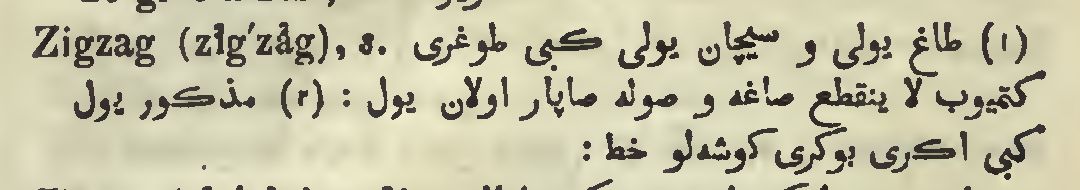 Zigzag (zĭg′zăg), s. (١) طاغ يولى و سيچان يولى كبى طوغرى
كتميوب لا ينقطع صاغه و صوله صاپار اولان يول : (٢) مذكور يول
كبى اكرى بوكرى كوشه‌لو خط :